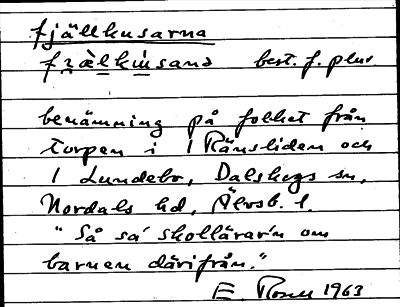 fjällkusarna
fjälkusana best. f. plur
benämning på folket från
torpen i 1 Ränsliden och
1 Lundebo, Dalskogs sn,
Nordals hd, Älvsb. l.
"Så sa' skollärar'n om
barnen därifrån."
E. 1963